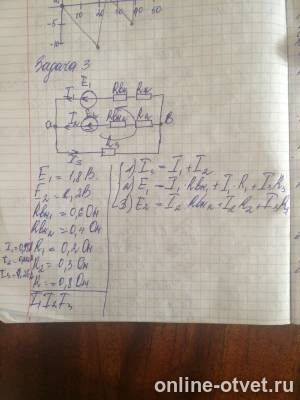 -5
-10
50
Задача 3
E₁
I₁ Rвн₁ R₁
I₂ Rвн₂
a B
R₃
I₃
E₁ = 1,8 В
E₂ = 1,2 В
Rвн₁ = 0,6 Ом
Rвн₂ = 0,4 Ом
R₁ = 0,2 Ом
R₂ = 0,3 Ом
R₃ = 0,8 Ом
I₁ I₂ I₃
1) I₃ = I₁ + I₂
2) E₁ = I₁ Rвн₁ + I₁ R₁ + I₃ R₃
3) E₂ = I₂ Rвн₂ + I₂ R₂ + I₃ R₃
online-otvet.ru